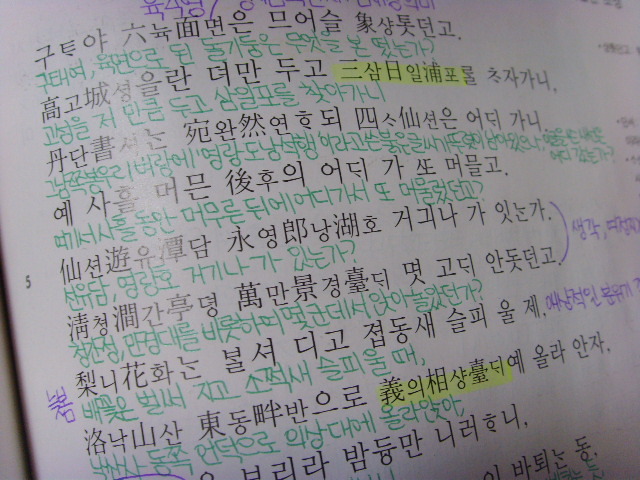 육각형
구틔야 六뉵面면은 므어슬 象샹톳던고.
구태여, 육면으로 된 돌기둥은 무엇을 본 떴는가?
高고城셩을란 뎌만 두고 三삼日일浦포를 ᄎᆞ자가니,
고성을 저 만큼 두고 삼일포를 찾아가니
丹단書셔는 宛완然연ᄒᆞ되 四ᄉᆞ仙션은 어ᄃᆡ 가니.
예 사흘 머믄 後후의 어ᄃᆡ 가 ᄯᅩ 머믈고.
여기서 사흘 동안 머무른 뒤에 어디가서 또 머물렀던고?
5
仙션遊유潭담 永영郎낭湖호 거긔나 가 잇ᄂᆞᆫ가.
선유담, 영랑호 거기나 가 있는가?
淸쳥澗간亭뎡 萬만景경臺ᄃᆡ 몃 고ᄃᆡ 안돗던고.
청간정, 만경대를 비롯하며 몇 군데서 앉아 놀았던가?
梨니花화ᄂᆞᆫ ᄇᆞᆯ셔 디고 졉동새 슬피 울 제,
배꽃은 벌써 지고 소쩍새 슬피 울 때,
洛낙山산 東동畔반으로 義의相샹臺ᄃᆡ예 올라 안자,
낙산사 동쪽 언덕으로 의상대에 올라앉아
보리라 밤듕만 니러ᄒᆞ니,
바퇴는 동,